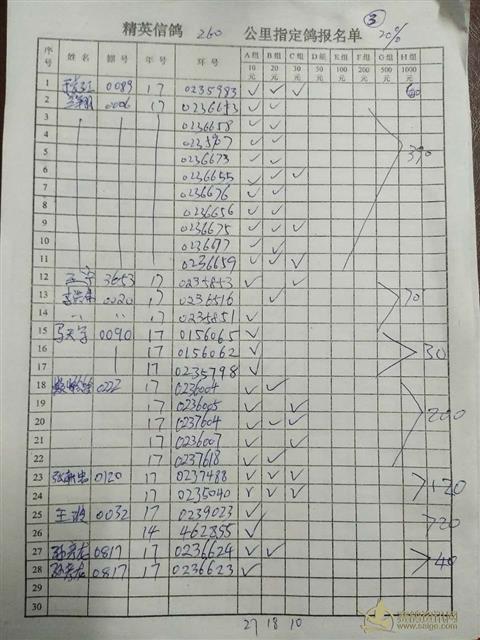 ③
精英信鸽 260 公里指定鸽报名单 20%
序号 姓名 棚号 年号 环号 A组10元 B组20元 C组30元 D组50元 E组100元 F组200元 G组500元 H组1000元
1 0089 17 0235983 ✓ ✓ ✓ 60
2 0006 17 0236613 ✓ ✓
3 0236658 ✓ ✓
4 ✓ ✓
5 0236673 ✓ ✓
6 0236655 ✓ ✓ ✓
7 0236676 ✓ ✓
8 0236656 ✓ ✓
9 0236675 ✓ ✓ ✓
10 ✓
11 0236659 ✓ ✓ ✓
12 王宇 3653 17 0235853 ✓ ✓
13 0020 17 0236516 ✓
14 " " 17 0235851 ✓
15 马天宇 0090 17 0156065 ✓
16 17 0156062 ✓ 30
17 17 0235798 ✓
18 0222 17 0236004 ✓ ✓
19 17 0236005 ✓ ✓
20 17 0237604 ✓ ✓ ✓ 200
21 17 0236007 ✓ ✓
22 17 0237618 ✓ ✓
23 0120 17 0237488 ✓ ✓ ✓
24 17 0235040 ✓ ✓ ✓ 120
25 0032 17 0239023 ✓
26 14 462855 ✓ 20
27 0817 17 0236624 ✓ ✓
28 0817 17 0236623 ✓ 40
29
30
27 18 10
www.saige.com